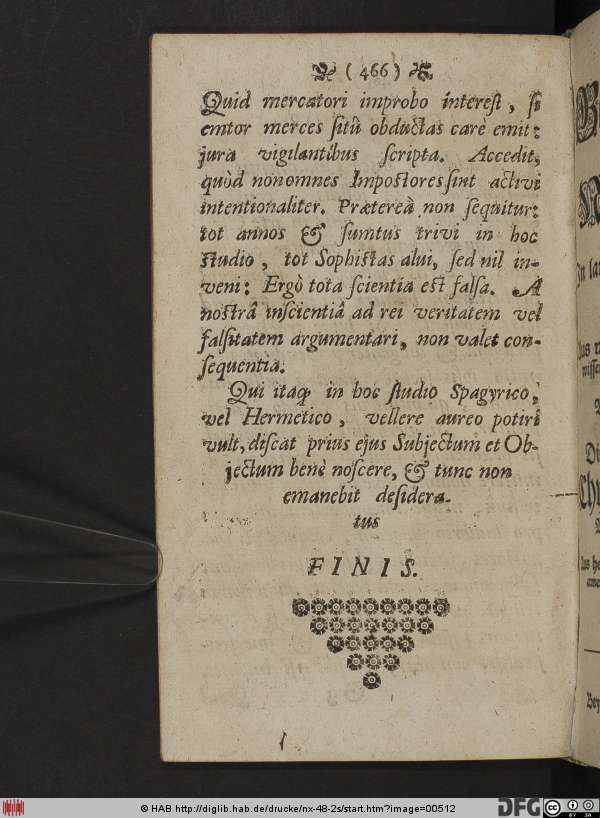 ( 466 )
Quid mercatori improbo interest, si
emtor merces sitû obductas care emit:
jura vigilantibus scripta. Accedit,
quòd non omnes Impostores sint activi
intentionaliter. Præterea non sequitur:
tot annos & sumtus trivi in hoc
studio, tot Sophistas alui, sed nil in-
veni: Ergò tota scientia est falsa. A
nostrâ inscientiâ ad rei veritatem vel
falsitatem argumentari, non valet con-
sequentia.
Qui itaq; in hoc studio Spagyrico,
vel Hermetico, vellere aureo potiri
vult, discat prius ejus Subjectum et Ob-
jectum benè noscere, & tunc non
emanebit desidera-
tus
FINIS.
In
Di
Bey
© HAB http://diglib.hab.de/drucke/nx-48-2s/start.htm?image=00512
DFG
cc
BY SA